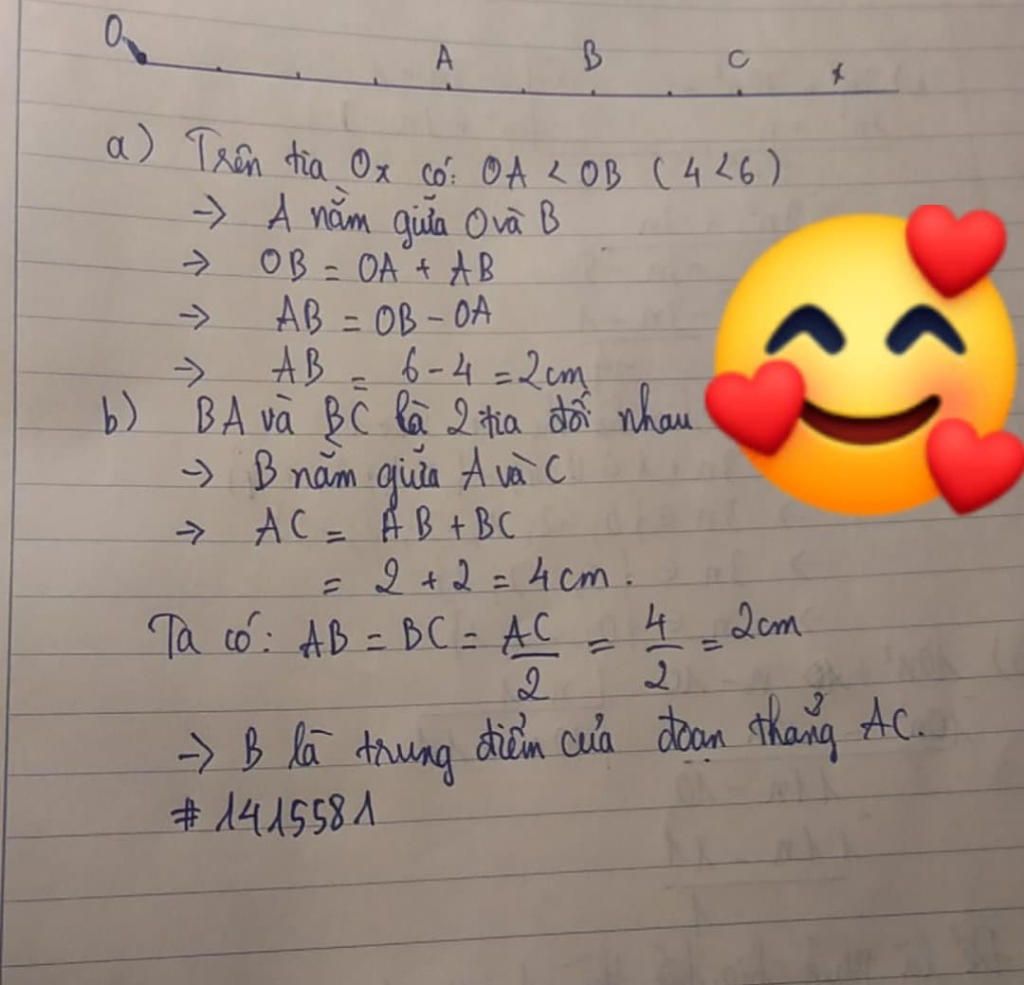 O A B C x
a) Trên tia Ox có: OA < OB (4<6)
-> A nằm giữa O và B
-> OB = OA + AB
-> AB = OB - OA
-> AB = 6 - 4 = 2cm
b) BA và BC là 2 tia đối nhau
-> B nằm giữa A và C
-> AC = AB + BC
= 2 + 2 = 4cm.
Ta có: AB = BC = AC/2 = 4/2 = 2cm
-> B là trung điểm của đoạn thẳng AC.
#1415581